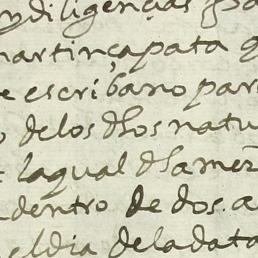 y diligençias
martin çapata
e escribano par
delos dhos natu
laqual dha mer
dentro de dos a
el dia dela data